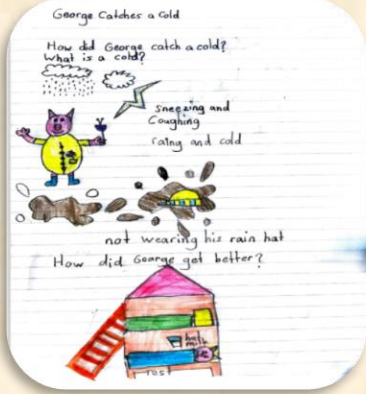 George Catches a Cold
How did George catch a cold?
What is a cold?
sneezing and
Coughing
rainy and cold
not wearing his rain hat
How did George get better?
hot
milk
rest